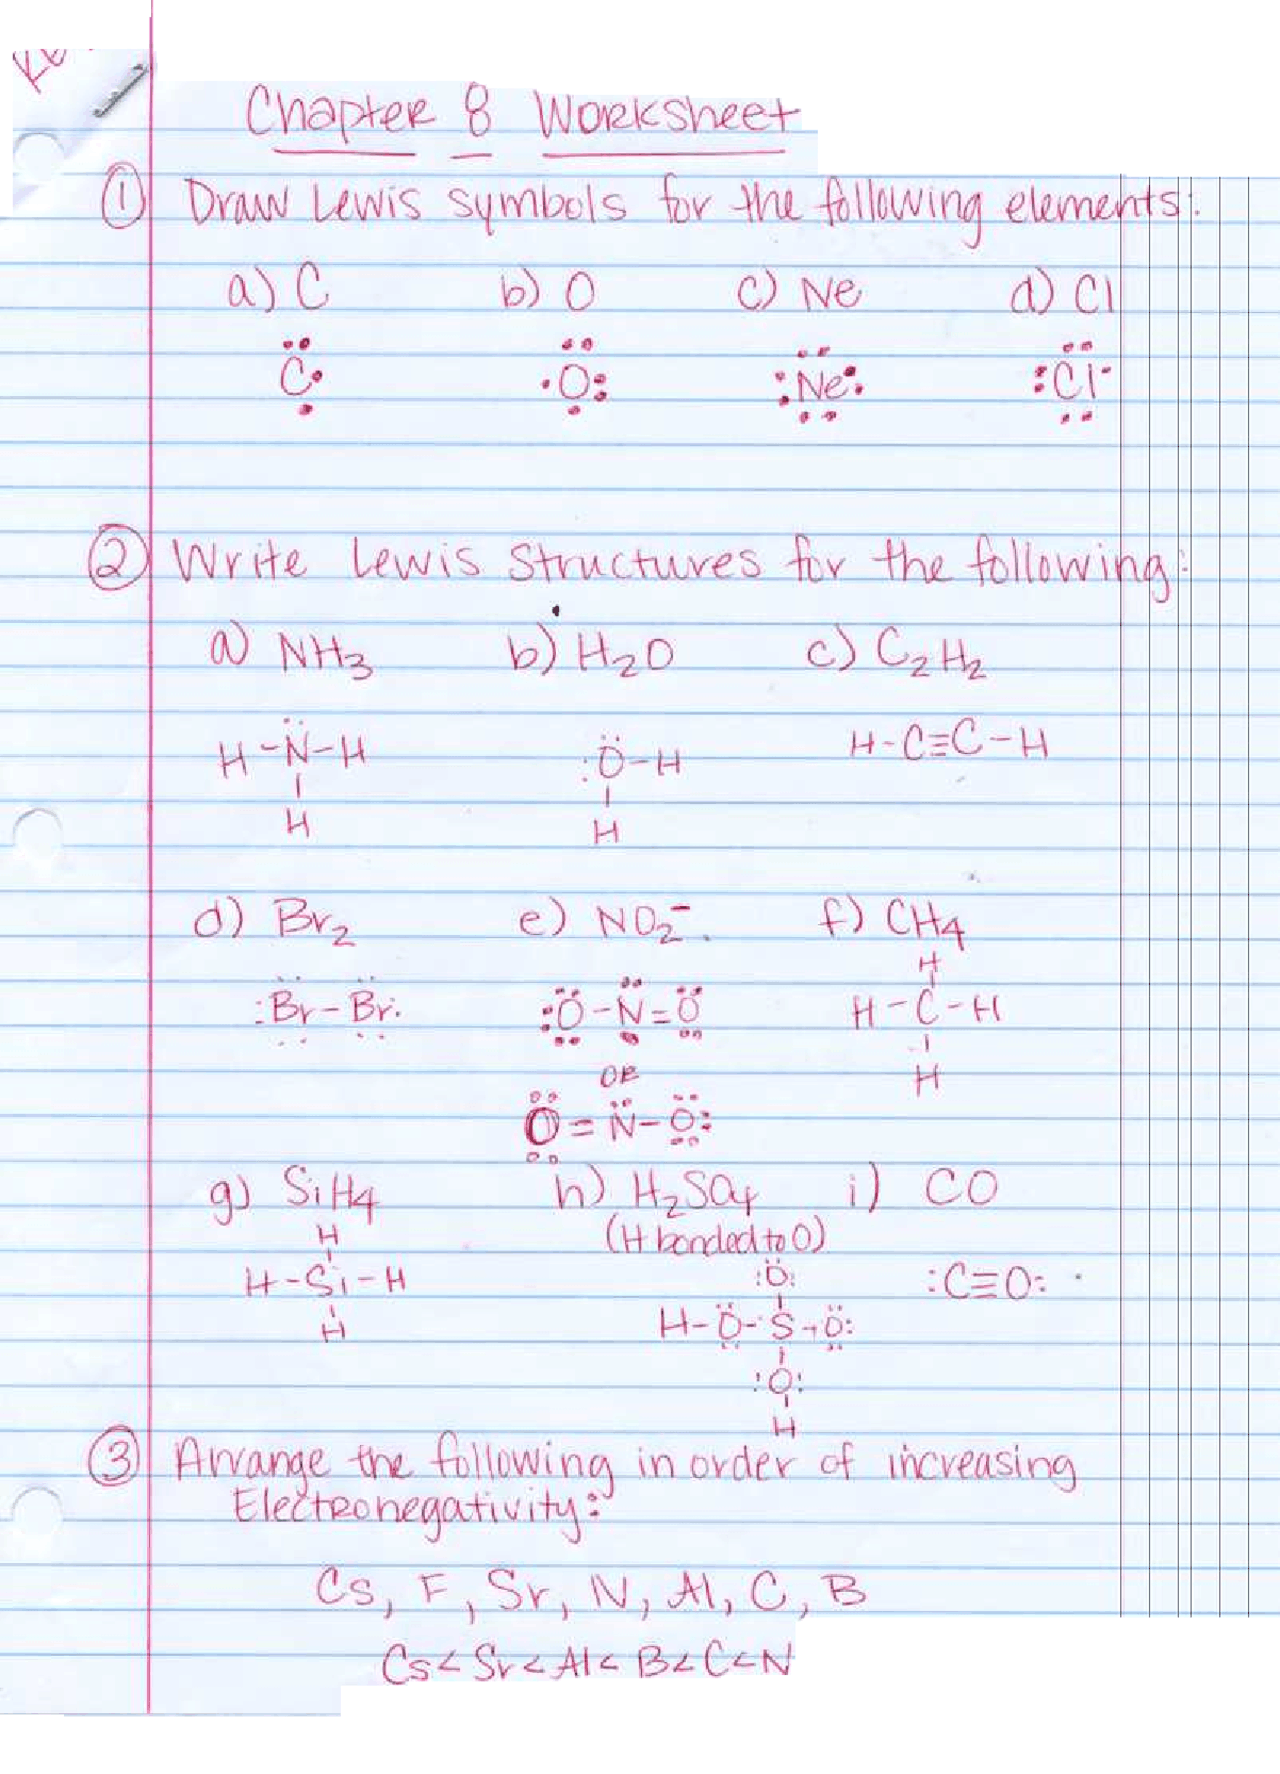 Chapter 8 Worksheet
① Draw Lewis symbols for the following elements:
a) C b) O c) Ne d) Cl
C O Ne Cl
② Write Lewis Structures for the following:
a) NH3 b) H2O c) C2H2
H-N-H :O-H H-C≡C-H
H H
d) Br2 e) NO2⁻ f) CH4
H
:Br-Br: :O-N=O H-C-H
OR H
O=N-O:
g) SiH4 h) H2SO4 i) CO
H (H bonded to O)
H-Si-H :O: :C≡O:
H H-O-S-O:
:O:
H
③ Arrange the following in order of increasing
Electronegativity:
Cs, F, Sr, N, Al, C, B
Cs < Sr < Al < B < C < N